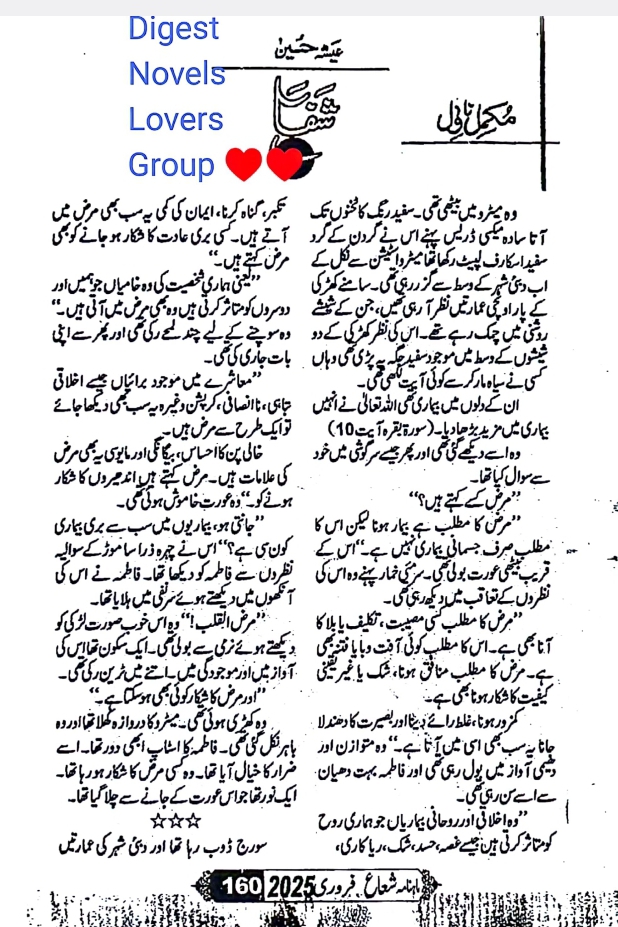 Digest
Novels
Lovers
Group
عیشہ حسین
شفا
مکمل ناول
وہ میٹرو میں بیٹھی تھی۔ سفید رنگ کا ٹخنوں تک
آتا سادہ میکسی ڈریس پہنے اس نے گردن کے گرد
سفید اسکارف لپیٹ رکھا تھا میٹرو اسٹیشن سے نکل کے
اب دبئی شہر کے وسط سے گزر رہی تھی۔ سامنے کھڑکی
کے پار اونچی عمارتیں نظر آ رہی تھیں، جن کے شیشے
روشنی میں چمک رہے تھے۔ اس کی نظر کھڑکی کے دو
شیشوں کے وسط میں موجود سفید جگہ پہ پڑی تھی وہاں
کسی نے سیاہ مارکر سے کوئی آیت لکھی تھی۔
ان کے دلوں میں بیماری تھی اللہ تعالیٰ نے انہیں
بیماری میں مزید بڑھا دیا۔ (سورۃ بقرہ آیت 10)
وہ اسے دیکھے گئی تھی اور پھر جیسے سرگوشی میں خود
سے سوال کیا تھا۔
”مرض کسے کہتے ہیں؟“
”مرض کا مطلب ہے بیمار ہونا لیکن اس کا
مطلب صرف جسمانی بیماری نہیں ہے۔“ اس کے
قریب بیٹھی عورت بولی تھی۔ سرمئی خمار پہنے وہ اس کی
نظروں کے تعاقب میں دیکھ رہی تھی۔
”مرض کا مطلب کسی مصیبت، تکلیف یا بلا کا
آنا بھی ہے۔ اس کا مطلب کوئی آفت وبا یا فتنہ بھی
ہے۔ مرض کا مطلب منافق ہونا، شک یا غیر یقینی
کیفیت کا شکار ہونا بھی ہے۔
کمزور ہونا، غلط رائے دینا اور بصیرت کا دھندلا
جانا یہ سب بھی اسی میں آتا ہے۔“ وہ متوازن اور
دھیمی آواز میں بول رہی تھی اور فاطمہ بہت دھیان
سے اسے سن رہی تھی۔
”وہ اخلاقی اور روحانی بیماریاں جو ہماری روح
کو متاثر کرتی ہیں جیسے غصہ، حسد، شک، ریاکاری،
تکبر، گناہ کرنا، ایمان کی کمی یہ سب بھی مرض میں
آتے ہیں۔ کسی بری عادت کا شکار ہو جانے کو بھی
مرض کہتے ہیں۔“
”یعنی ہماری شخصیت کی وہ خامیاں جو ہمیں اور
دوسروں کو متاثر کرتی ہیں وہ بھی مرض میں آتی ہیں۔“
وہ سوچنے کے لیے چند لمحے رکی تھی اور پھر سے اپنی
بات جاری کی تھی۔
”معاشرے میں موجود برائیاں جیسے اخلاقی
تباہی، ناانصافی، کرپشن وغیرہ یہ سب بھی دیکھا جائے
تو ایک طرح سے مرض ہیں۔
خالی پن کا احساس، بیگانگی اور مایوسی یہ بھی مرض
کی علامات ہیں۔ مرض کہتے ہیں اندھیروں کا شکار
ہونے کو۔“ وہ عورت خاموش ہوئی تھی۔
”جانتی ہو، بیماریوں میں سب سے بری بیماری
کون سی ہے؟“ اس نے چہرہ ذرا سا موڑ کے سوالیہ
نظروں سے فاطمہ کو دیکھا تھا۔ فاطمہ نے اس کی
آنکھوں میں دیکھتے ہوئے سر نفی میں ہلایا تھا۔
”مرض القلب!“ وہ اس خوب صورت لڑکی کو
دیکھتے ہوئے نرمی سے بولی تھی۔ ایک سکون تھا اس کی
آواز میں اور موجودگی میں۔ اتنے میں ٹرین رکی تھی۔
”اور مرض کا شکار کوئی بھی ہو سکتا ہے۔“
وہ کھڑی ہوئی تھی۔ میٹرو کا دروازہ کھلا تھا اور وہ
باہر نکل گئی تھی۔ فاطمہ کا اسٹاپ ابھی دور تھا۔ اسے
ضرار کا خیال آیا تھا۔ وہ کسی مرض کا شکار ہو رہا تھا۔
ایک نور تھا جو اس عورت کے جانے سے چلا گیا تھا۔
☆☆☆
سورج ڈوب رہا تھا اور دبئی شہر کی عمارتیں
ماہنامہ شعاع فروری 2025 160